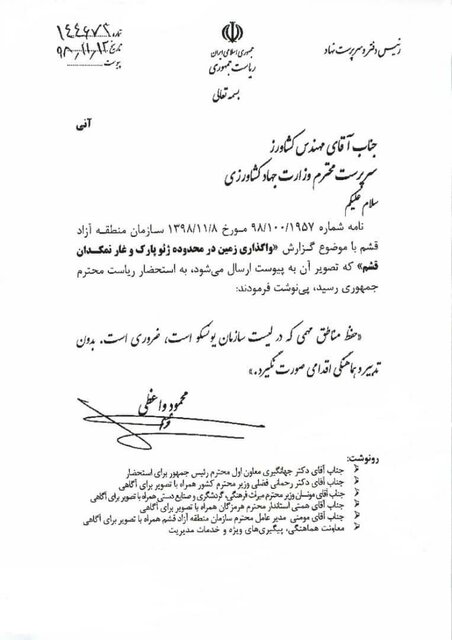 رئیس دفتر و سرپرست نهاد
جمهوری اسلامی ایران
ریاست جمهوری
بسمه تعالی
شماره ۱۴۴۶۷۳
تاریخ ۹۸,۱۱,۱۲
پیوست
آنی
جناب آقای مهندس کشاورز
سرپرست محترم وزارت جهاد کشاورزی
سلام علیکم
نامه شماره ۹۸/۱۰۰/۱۹۵۷ مورخ ۱۳۹۸/۱۱/۸ سازمان منطقه آزاد
قشم با موضوع گزارش «واگذاری زمین در محدوده ژئو پارک و غار نمکدان
قشم» که تصویر آن به پیوست ارسال می‌شود، به استحضار ریاست محترم
جمهوری رسید، پی‌نوشت فرمودند:
«حفظ مناطق مهمی که در لیست سازمان یونسکو است، ضروری است. بدون
تدبیر و هماهنگی اقدامی صورت نگیرد.»
محمود واعظی
رونوشت:
جناب آقای دکتر جهانگیری معاون اول محترم رئیس جمهور برای استحضار
جناب آقای دکتر رحمانی فضلی وزیر محترم کشور همراه با تصویر برای آگاهی
جناب آقای مونسان وزیر محترم میراث فرهنگی، گردشگری و صنایع دستی همراه با تصویر برای آگاهی
جناب آقای همتی استاندار محترم هرمزگان همراه با تصویر برای آگاهی
جناب آقای مومنی مدیر عامل محترم سازمان منطقه آزاد قشم همراه با تصویر برای آگاهی
معاونت هماهنگی، پیگیری‌های ویژه و خدمات مدیریت